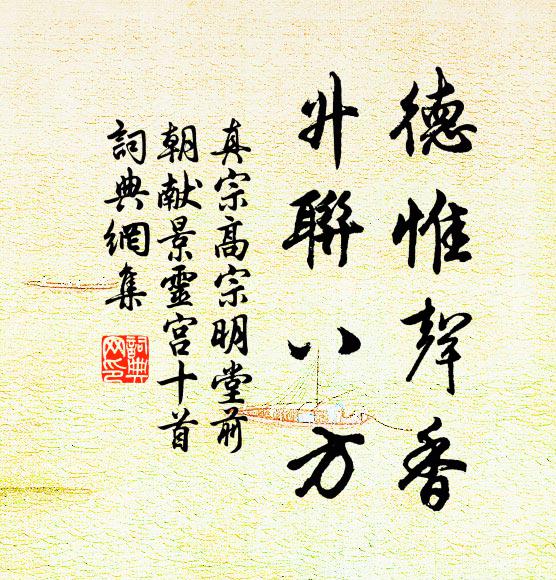 德惟聲香
升聯八方
真宗高宗明堂前
朝献景靈宮十首
詞典網集
詞典网印